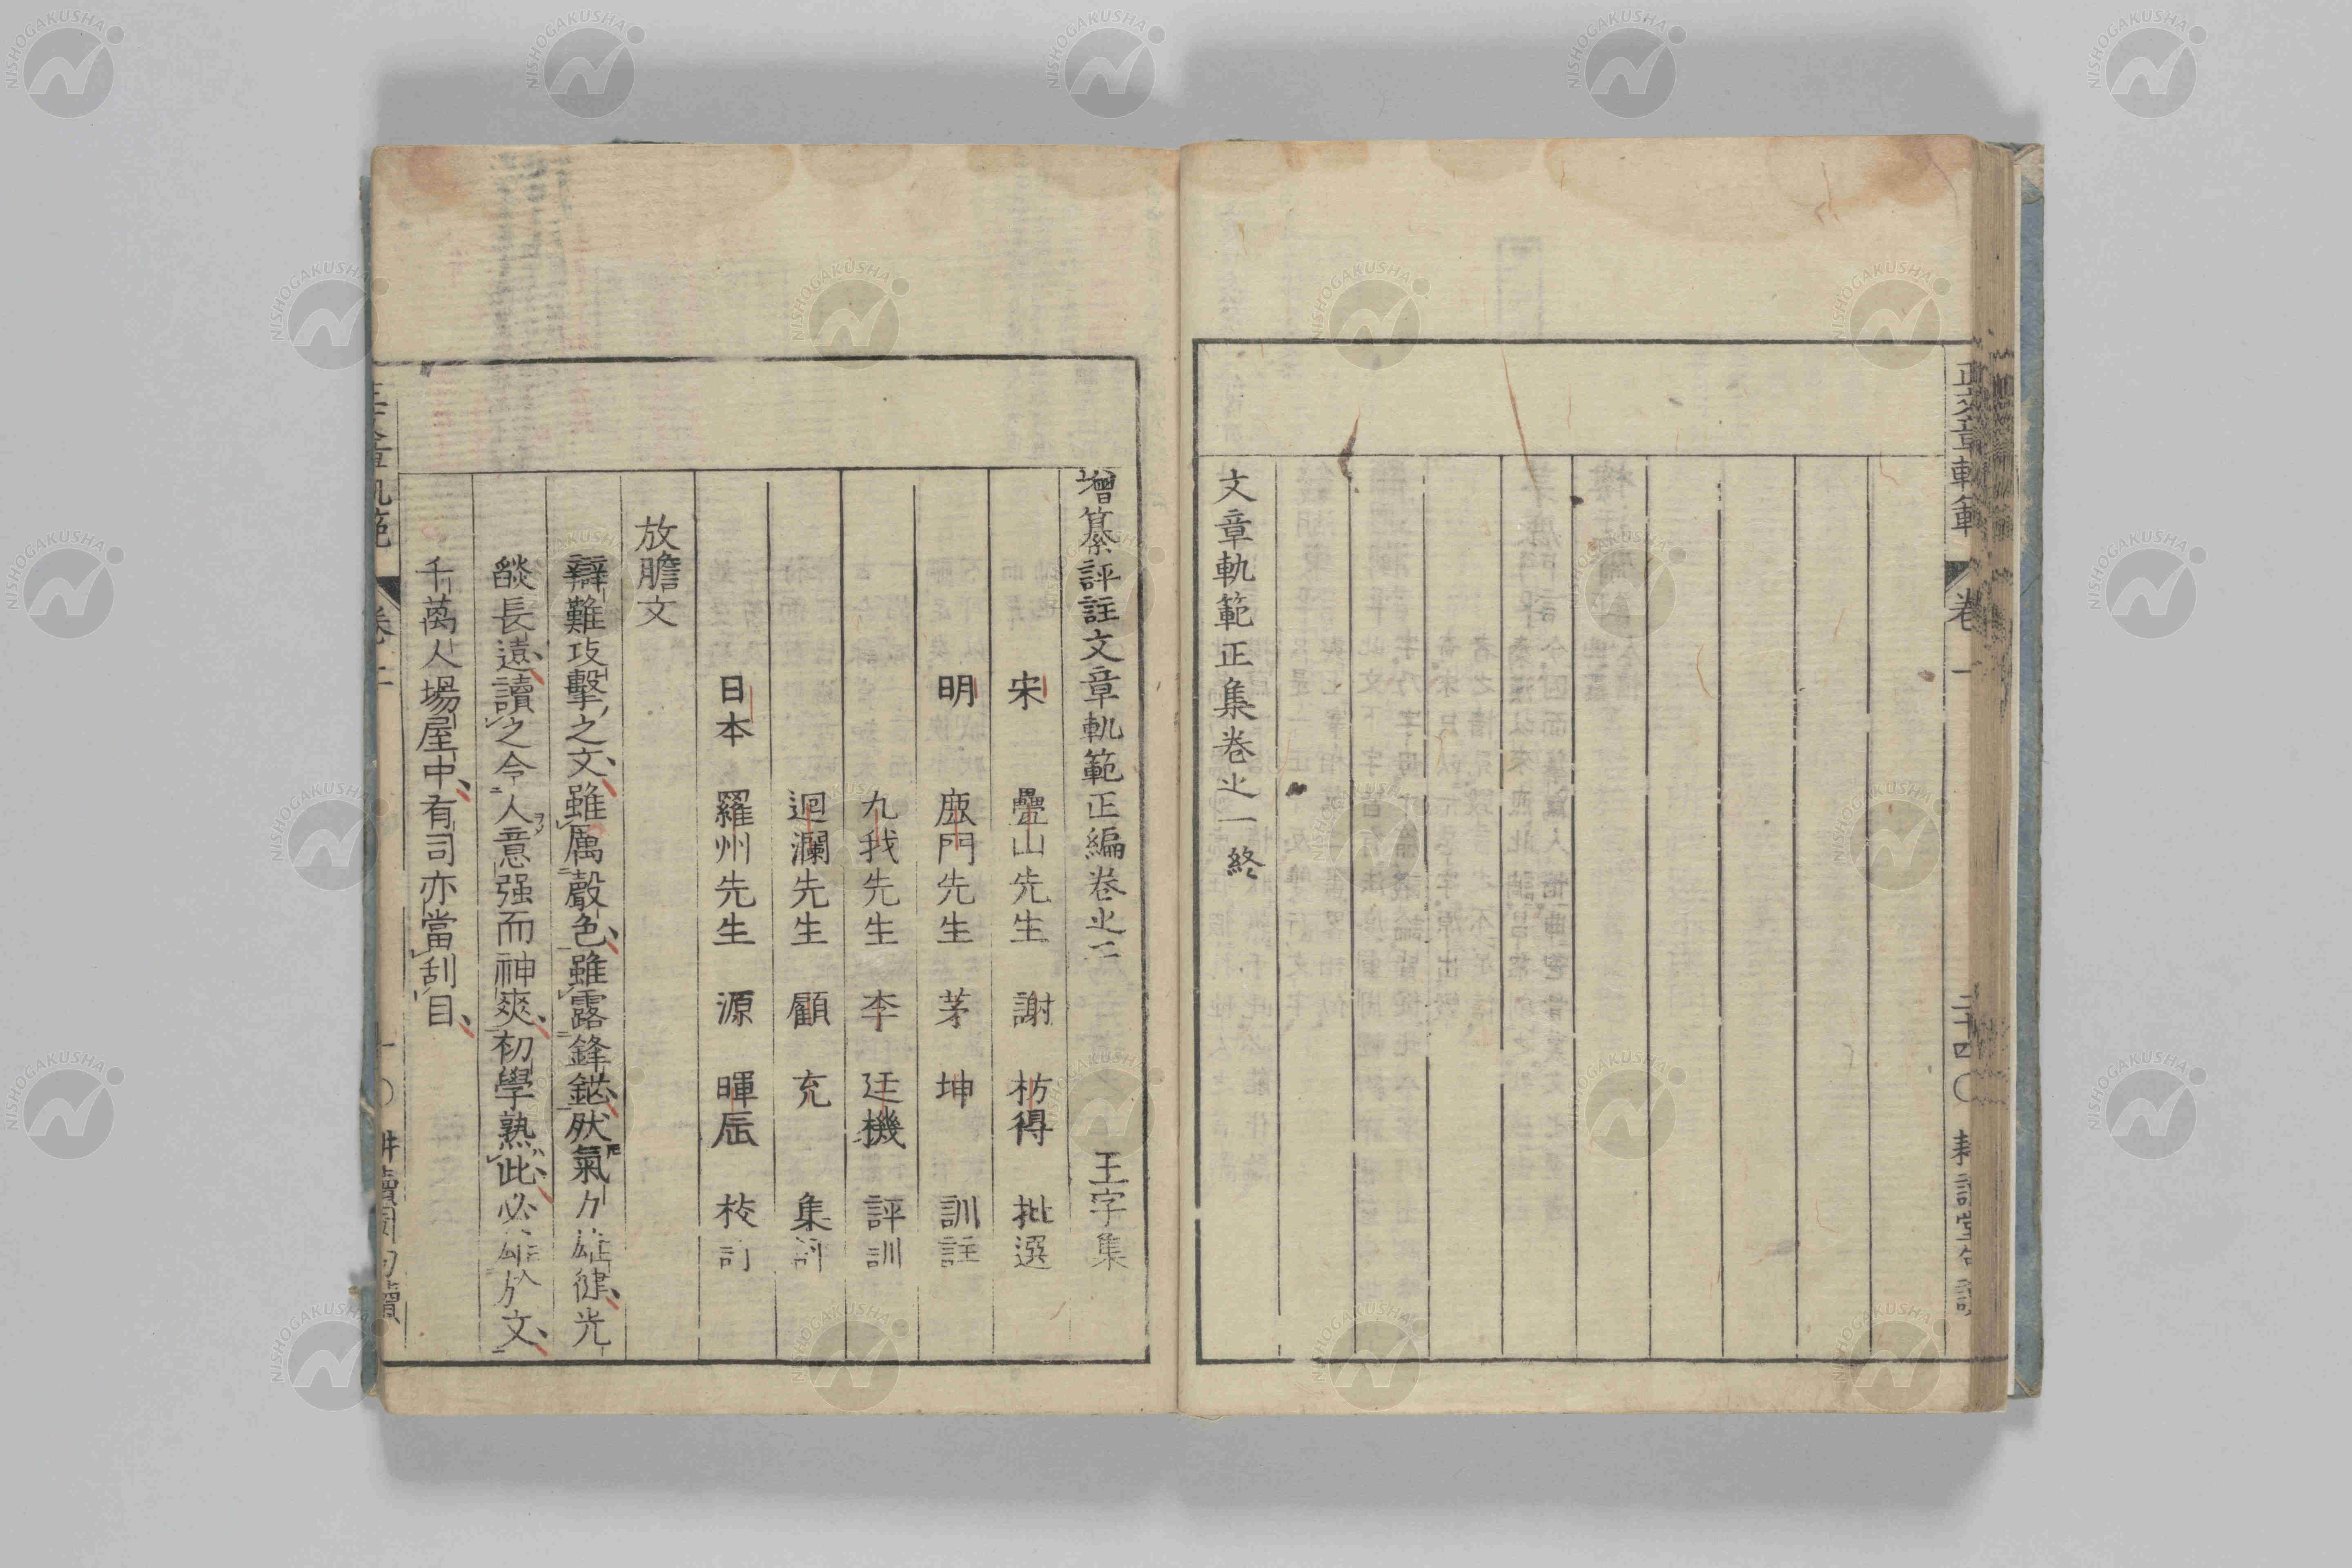 文章軌範正集卷之一終
增纂評註文章軌範正編卷之二
王字集
宋 疊山先生 謝 枋得 批選
明 鹿門先生 茅 坤 訓註
九我先生 李 廷機 評訓
迴瀾先生 顧 充 集
日本 羅州先生 源 暉辰 校訂
放膽文
辯難攻擊之文雖厲聲色雖露鋒鋩然氣力雄健光
燄長遠讀之令人意强而神爽初學熟此必雄於文
千萬人場屋中有司亦當刮目
正文章軌範 卷一 二十四〇 耕讀堂句讀
NISHOGAKUSHA